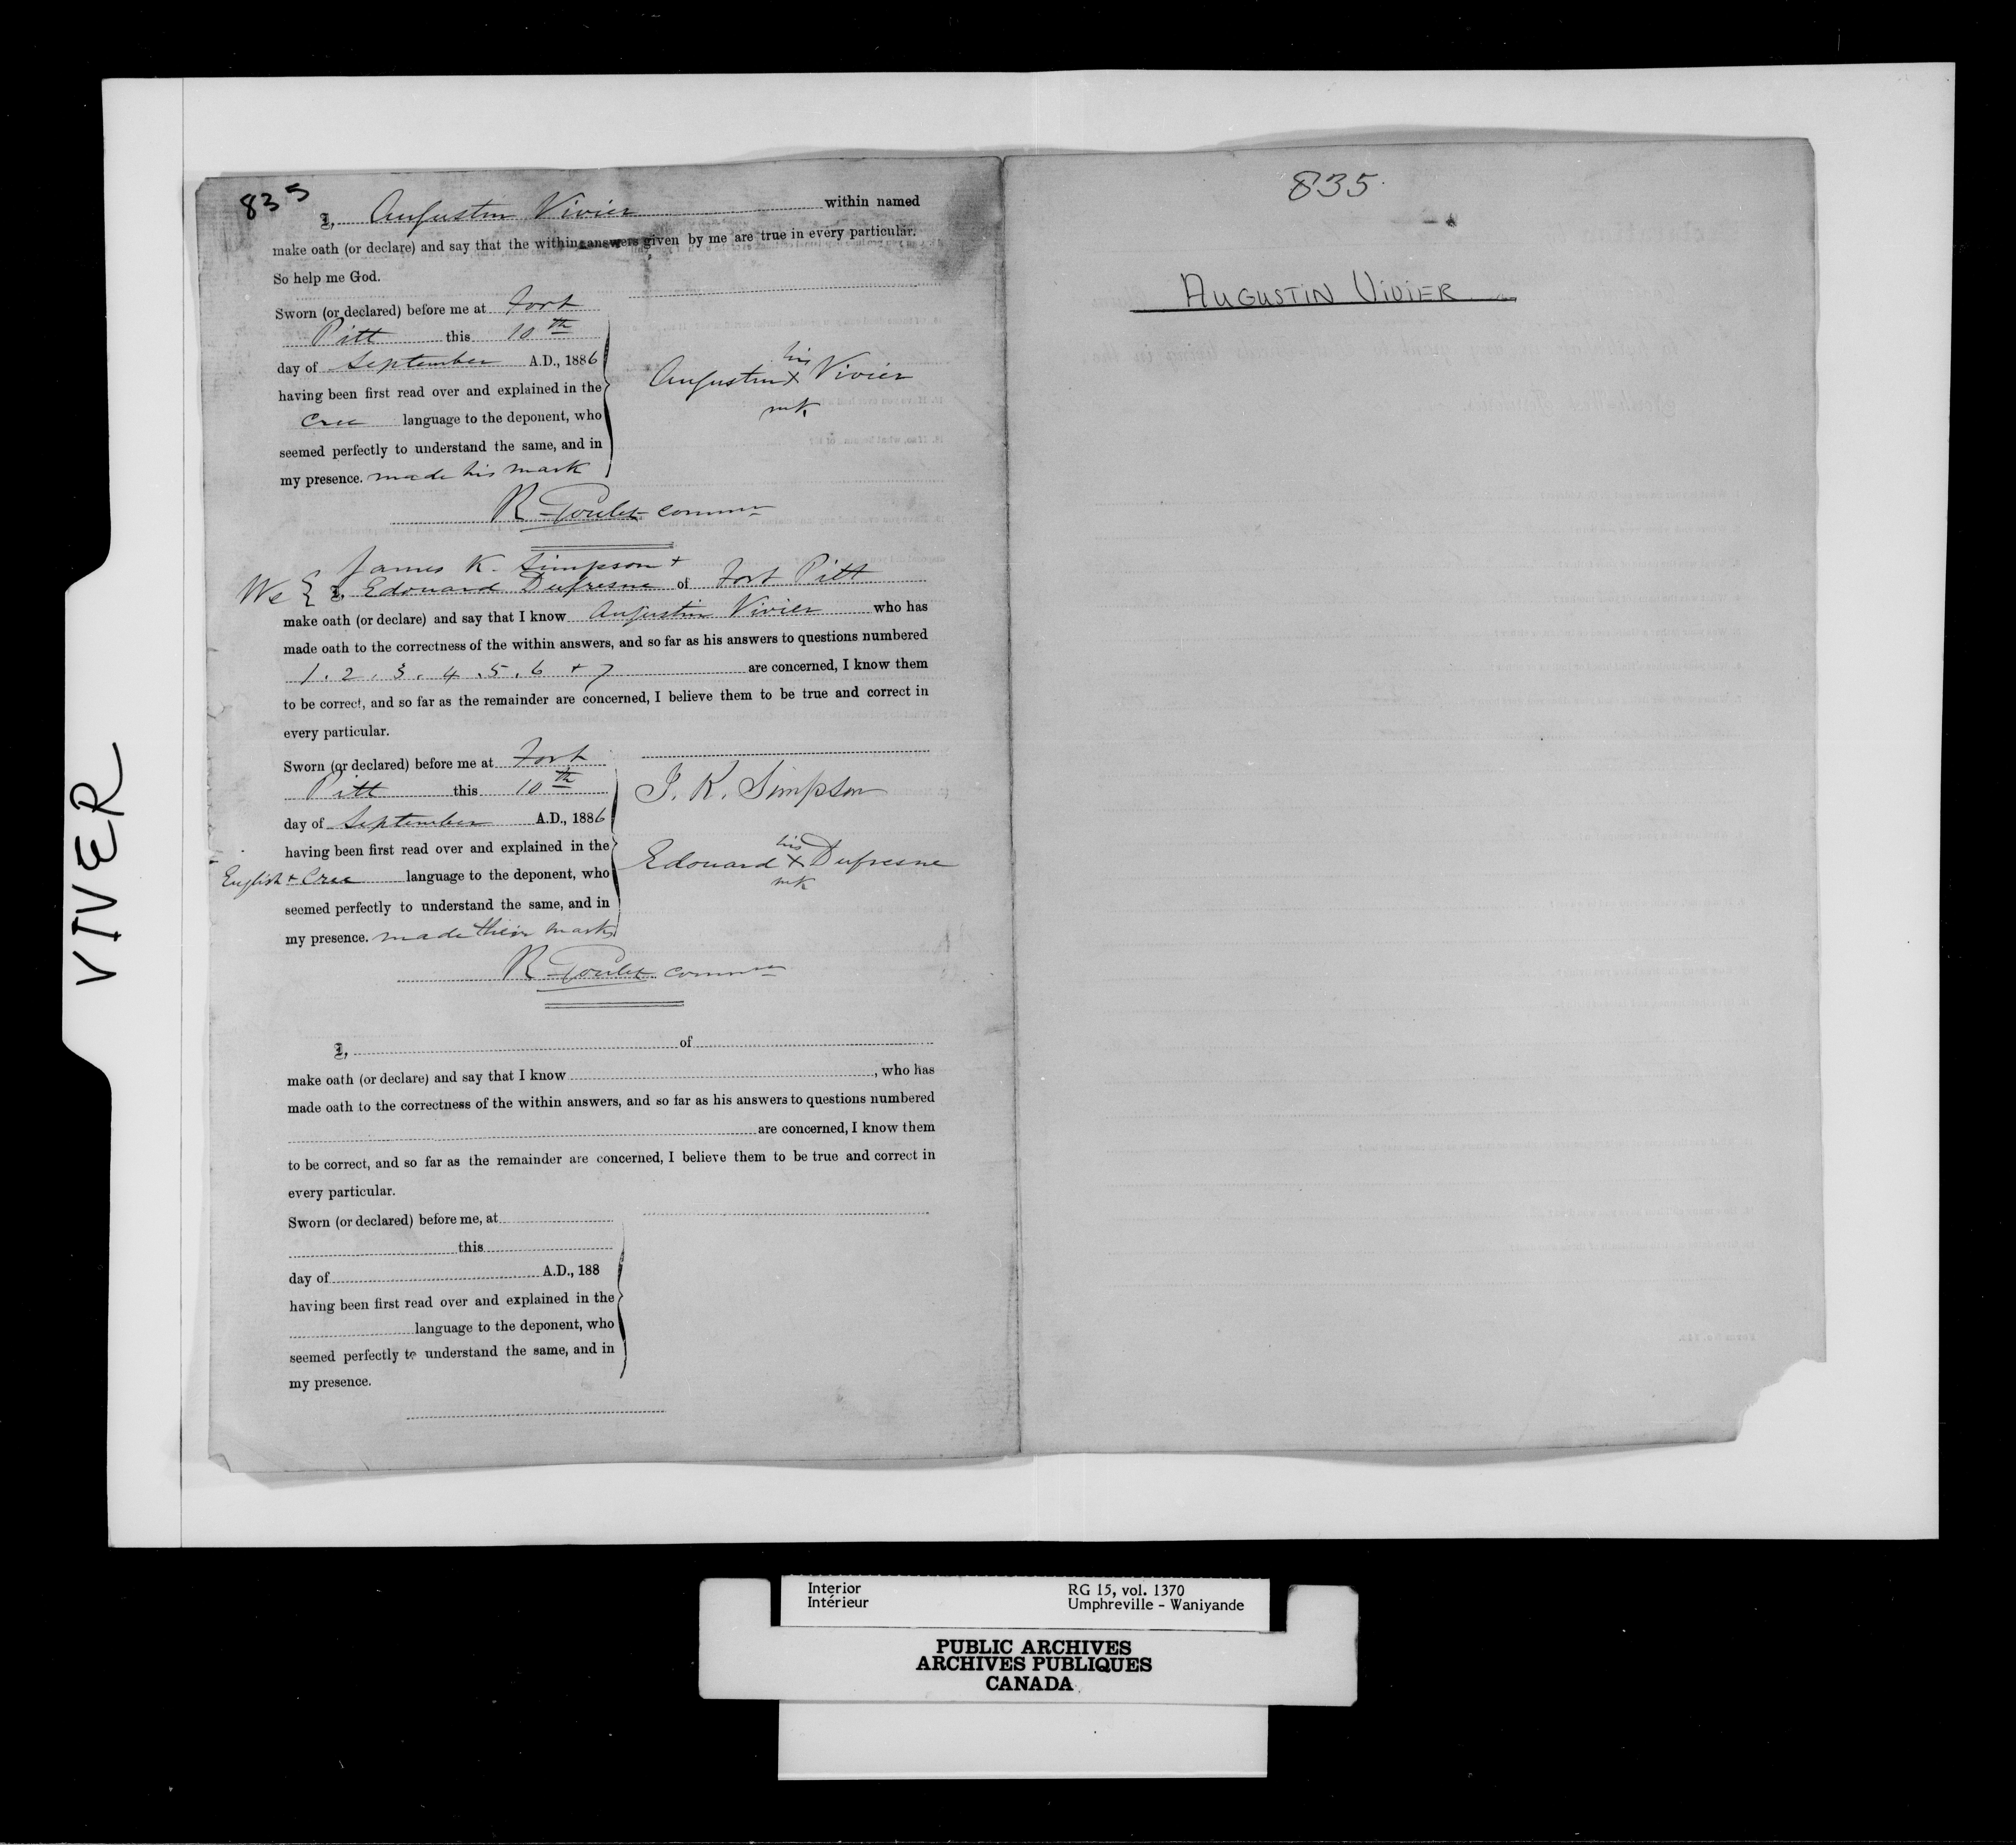 VIVER
835
I, Augustin Vivier within named
make oath (or declare) and say that the within answers given by me are true in every particular.
So help me God.
Sworn (or declared) before me at Fort
Pitt this 10th
day of September A.D., 1886
having been first read over and explained in the
Cree language to the deponent, who
seemed perfectly to understand the same, and in
my presence. made his mark
his
Augustin X Vivier
mk
R Goulet Commr
James K. Simpson +
We { I, Edouard Dufresne of Fort Pitt
make oath (or declare) and say that I know Augustin Vivier who has
made oath to the correctness of the within answers, and so far as his answers to questions numbered
1. 2. 3. 4. 5. 6 + 7 are concerned, I know them
to be correct, and so far as the remainder are concerned, I believe them to be true and correct in
every particular.
Sworn (or declared) before me at Fort
Pitt this 10th
day of September A.D., 1886
having been first read over and explained in the
English + Cree language to the deponent, who
seemed perfectly to understand the same, and in
my presence. made their marks
J. K. Simpson
his
Edouard X Dufresne
mk
R Goulet Commr
I, of
make oath (or declare) and say that I know , who has
made oath to the correctness of the within answers, and so far as his answers to questions numbered
are concerned, I know them
to be correct, and so far as the remainder are concerned, I believe them to be true and correct in
every particular.
Sworn (or declared) before me, at
this
day of A.D., 188
having been first read over and explained in the
language to the deponent, who
seemed perfectly to understand the same, and in
my presence.
835
AUGUSTIN VIVIER
Interior
Intérieur
RG 15, vol. 1370
Umphreville - Waniyande
PUBLIC ARCHIVES
ARCHIVES PUBLIQUES
CANADA